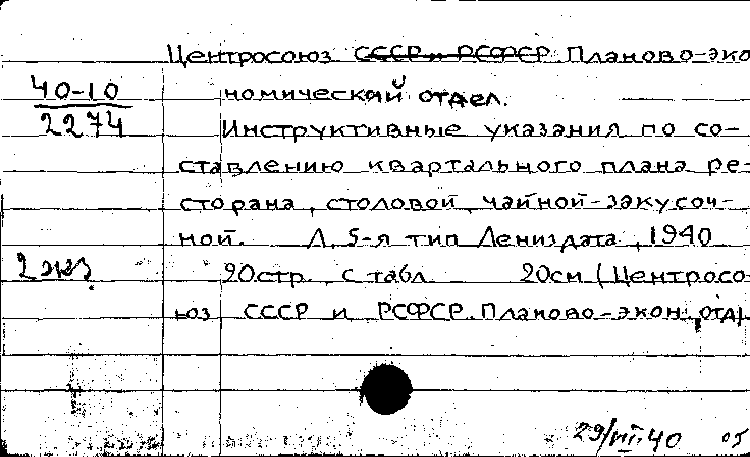 Центросоюз СССР и РСФСР. Планово-эко
40-10
номический отдел.
2274
Инструктивные указания по со-
ставлению квартального плана ре-
сторана, столовой, чайной-закусоч-
ной. Л, 5-я тип Лениздата, 1940
2 экз.
20стр. с табл. 20см (Центросо
юз СССР и РСФСР. Планово-экон. отд.
29/III.40 05